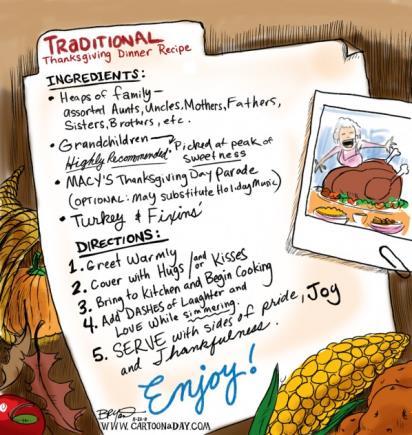 TRADITIONAL
Thanksgiving Dinner Recipe
INGREDIENTS:
• Heaps of family—
assorted Aunts, Uncles, Mothers, Fathers,
Sisters, Brothers, etc.
• Grandchildren
Highly Recommended. Picked at peak of
sweetness
• MACY'S Thanksgiving Day Parade
(OPTIONAL: May substitute Holiday Music)
• Turkey & Fixins'
DIRECTIONS:
1. Greet Warmly
2. Cover with Hugs and/or Kisses
3. Bring to Kitchen and Begin Cooking
4. Add DASHES of Laughter and
LOVE While simmering.
5. SERVE with sides of pride, Joy
and Thankfulness.
Enjoy!
WWW.CARTOONADAY.COM